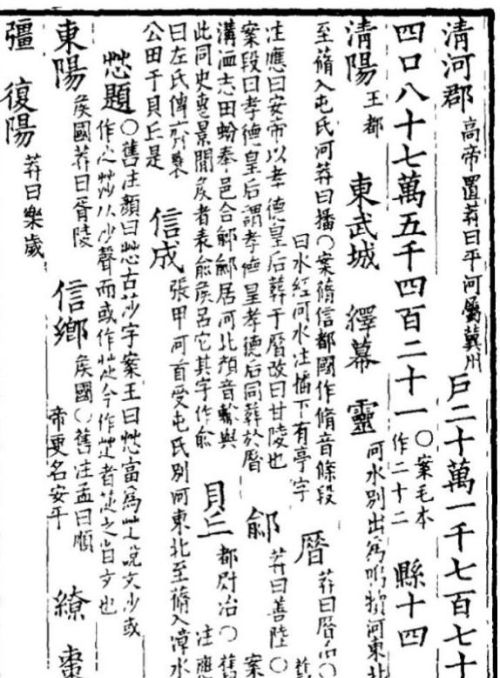 清河郡 高帝置莽曰平河屬冀州 戶二十萬一千七百七十
四口八十七萬五千四百二十一 ○案毛本作二十二 縣十四
清陽 王都 東武城 繹幕 靈 河水別出爲鳴犢河東北
至蓨入屯氏河莽曰播○案蓨信都國作脩音條段
曰水經河水注播下有亭字 厝 莽曰厝○
注應曰安帝以孝德皇后葬于厝改曰甘陵也
案段曰孝德皇后謂孝德皇孝德后同葬於厝 鄃 莽曰善陸○案
溝洫志田蚡奉邑合鄃鄃居河北顏音輸與
此同史惠景閒矦者表俞矦呂它其字作俞 貝丘 都尉治○舊注應
曰左氏傳齊襄
公田于貝丘是 信成 張甲河首受屯氏別河東北至蓨入漳水
題 ○舊注顏曰古莎字案王曰當爲說文沙或
作從少聲而或作今作者之省文也
東陽 矦國莽曰胥陵 信鄉 矦國○舊注孟曰順帝更名安平 繚 棗
彊 復陽 莽曰樂歲